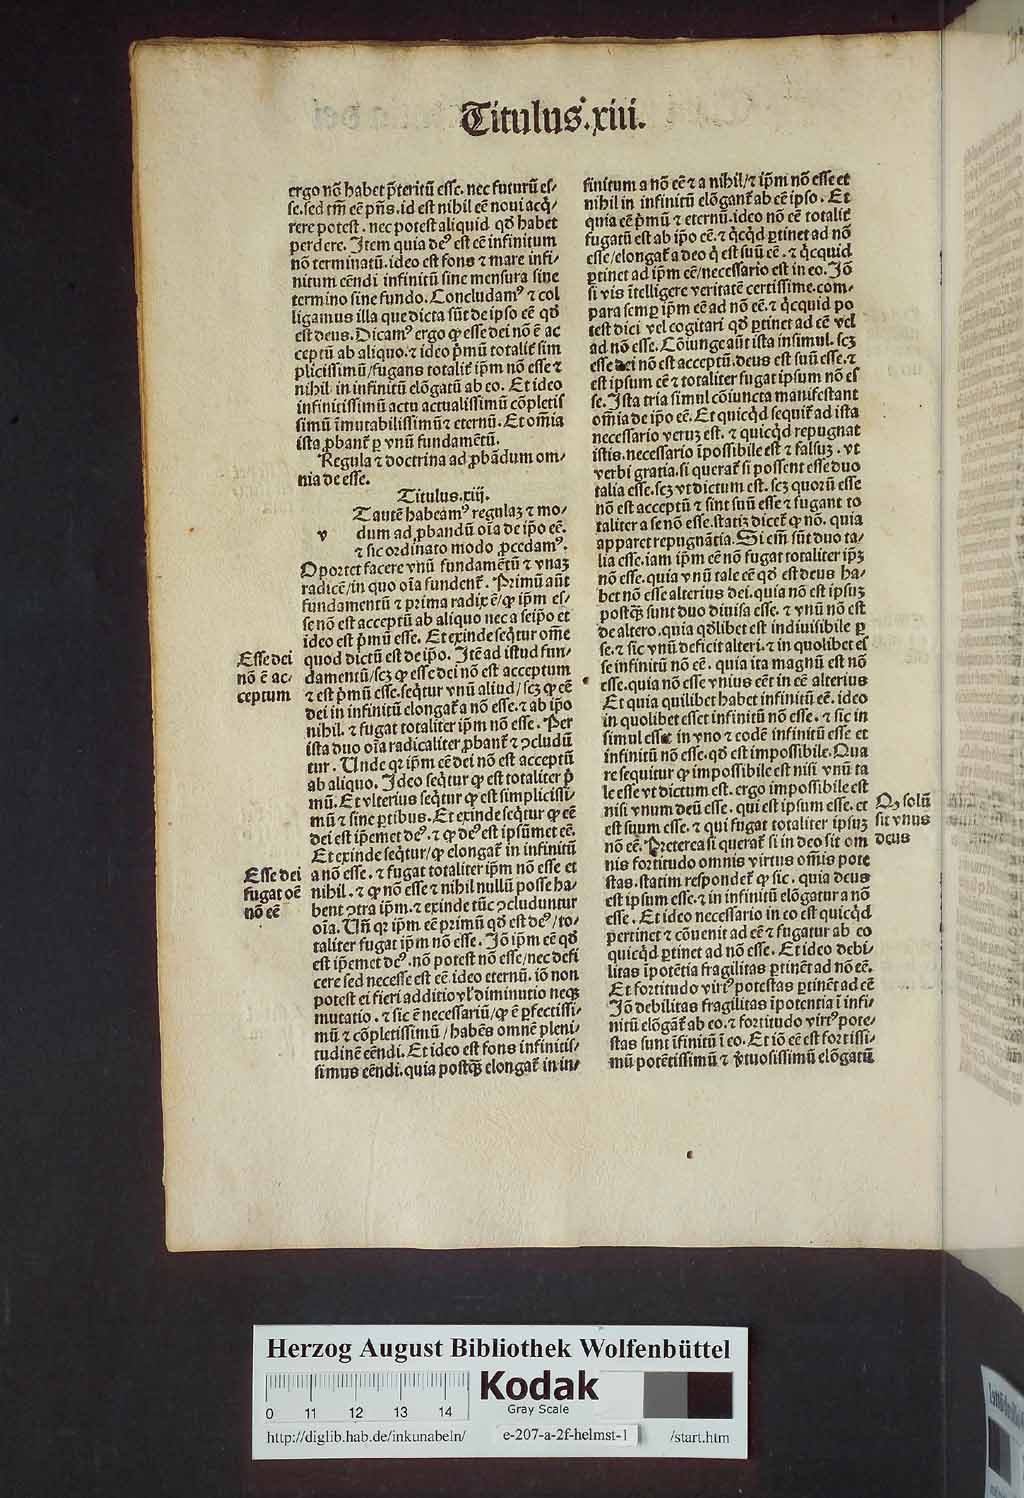 Titulus.xiii.
ergo nō habet p̄teritū esse. nec futurū es/
se. sed tm̄ eē pn̄s. id est nihil eē noui acq̄/
rere potest. nec potest aliquid qd̄ habet
perdere. Item quia deꝰ est eē infinitum
nō terminatū. ideo est fons ⁊ mare infi/
nitum eēndi infinitū sine mensura sine
termino sine fundo. Concludamꝰ ⁊ col
ligamus illa que dicta sūt de ipso eē qd̄
est deus. Dicamꝰ ergo ꝙ esse dei nō ē ac
ceptū ab aliquo. ⁊ ideo p̄mū totalit̄ sim
plicissimū/fugans totalit̄ ip̄m nō esse ⁊
nihil in infinitū elōgatū ab eo. Et ideo
infinitissimū actu actualissimū cōpletis
simū īmutabilissimū ⁊ eternū. Et om̄ia
ista ꝓbant̄ ꝑ vnū fundamētū.
Regula ⁊ doctrina ad ꝓbādum om/
nia de esse.
Titulus.xiij.
v
Tautē habeamꝰ regulaꝫ ⁊ mo/
dum ad ꝓbandū oīa de ip̄o eē.
⁊ sic ordinato modo ꝓcedamꝰ.
Oportet facere vnū fundamētū ⁊ vnaꝫ
radicē/in quo oīa fundent̄. Primū aūt
fundamentū ⁊ prima radix ē/ꝙ ip̄m es/
se nō est acceptū ab aliquo nec a seip̄o et
ideo est p̄mū esse. Et exinde seq̄tur om̄e
quod dictū est de ip̄o. Itē ad istud fun/
damentū/scꝫ ꝙ esse dei nō est acceptum
⁊ est p̄mū esse. seq̄tur vnū aliud/scꝫ ꝙ eē
dei in infinitū elongat̄ a nō esse. ⁊ ab ip̄o
nihil. ⁊ fugat totaliter ip̄m nō esse. Per
ista duo oīa radicaliter ꝓbant̄ ⁊ ꝯcludū
tur. Unde qꝛ ip̄m eē dei nō est acceptū
ab aliquo. Ideo seq̄tur ꝙ est totaliter p̄
mū. Et vlterius seq̄tur ꝙ est simplicissi/
mū ⁊ sine ꝑtibus. Et exinde seq̄tur ꝙ eē
dei est ip̄emet deꝰ. ⁊ ꝙ deꝰ est ipsūmet eē.
Et exinde seq̄tur/ꝙ elongat̄ in infinitū
a nō esse. ⁊ fugat totaliter ip̄m nō esse et
nihil. ⁊ ꝙ nō esse ⁊ nihil nullū posse ha/
bent ꝯtra ip̄m. ⁊ exinde tūc ꝯcluduntur
oīa. Un̄ qꝛ ip̄m eē primū qd̄ est deꝰ/to/
taliter fugat ip̄m nō esse. Iō ip̄m eē qd̄
est ip̄emet deꝰ. nō potest nō esse/nec defi
cere sed necesse est eē. ideo eternū. iō non
potest ei fieri additio vl̓ diminutio neqꝫ
mutatio. ⁊ sic ē necessariū/ꝙ ē ꝑfectissi/
mū ⁊ cōpletissimū/habēs omnē pleni/
tudinē eēndi. Et ideo est fons infinitis/
simus eēndi. quia postq̄ꝫ elongat̄ in in/
Esse dei
nō ē ac/
ceptum
Esse dei
fugat oē
nō eē
finitum a nō eē ⁊ a nihil/⁊ ip̄m nō esse et
nihil in infinitū elōgant̄ ab eē ipso. Et
quia eē p̄mū ⁊ eternū. ideo nō eē totalit̄
fugatū est ab ip̄o eē. ⁊ q̄cq̄d ꝑtinet ad nō
esse/elongat̄ a deo q̄ est suū eē. ⁊ q̄cquid
ꝑtinet ad ip̄m eē/necessario est in eo. Iō
si vis ītelligere veritatē certissime. com/
para semꝑ ip̄m eē ad nō eē. ⁊ q̄cquid po
test dici vel cogitari qd̄ ꝑtinet ad eē vel
ad nō esse. Cōiunge aūt ista insimul. scꝫ
esse dei nō est acceptū. deus est suū esse. ⁊
est ipsum eē ⁊ totaliter fugat ipsum nō es
se. Ista tria simul cōiuncta manifestant
om̄ia de ip̄o eē. Et quicq̄d sequit̄ ad ista
necessario veruꝫ est. ⁊ quicq̄d repugnat
istis. necessario īpossibile est ⁊ falsuꝫ. vt
verbi gratia. si querat̄ si possent esse duo
talia esse. scꝫ vt dictum est. scꝫ quorū esse
nō est acceptū ⁊ sint suū esse ⁊ fugant to
taliter a se nō esse. statiꝫ dicet̄ ꝙ nō. quia
apparet repugnātia. Si em̄ sūt duo ta/
lia esse. iam ip̄m eē nō fugat totaliter ip̄ꝫ
nō esse. quia vnū tale eē qd̄ est deus ha/
bet nō esse alterius dei. quia nō est ipsuꝫ
postq̄ꝫ sunt duo diuisa esse. ⁊ vnū nō est
de altero. quia qd̄libet est indiuisibile ꝑ
se. ⁊ sic vnū deficit alteri. ⁊ in quolibet es
se infinitū nō eē. quia ita magnū est nō
esse. quia nō esse vnius eēt in eē alterius
Et quia quilibet habet infinitū eē. ideo
in quolibet esset infinitū nō esse. ⁊ sic in
simul esset in vno ⁊ codē infinitū esse et
infinitū nō esse. qd̄ est impossibile. Qua
re sequitur ꝙ impossibile est nisi vnū ta
le esse vt dictum est. ergo impossibile est
nisi vnum deū esse. qui est ipsum esse. et
est suum esse. ⁊ qui fugat totaliter ipsuꝫ
nō eē. Preterea si querat̄ si in deo sit om
nis fortitudo omnis virtus om̄is pote
stas. statim respondet̄ ꝙ sic. quia deus
est ipsum esse. ⁊ in infinitū elōgatur a nō
esse. Et ideo necessario in eo est quicq̄d
pertinet ⁊ cōuenit ad eē ⁊ fugatur ab eo
quicq̄d ꝑtinet ad nō esse. Et ideo debi/
litas īpotētia fragilitas ꝑtinēt ad nō eē.
Et fortitudo virtꝰ potestas ꝑtinēt ad eē
Iō debilitas fragilitas īpotentia ī infi/
nitū elōgāt̄ ab eo. ⁊ fortitudo virtꝰ pote/
stas sunt īfinitū ī eo. Et iō eē est fortissi/
mū potētissimū ⁊ v̓tuosissimū elōgatū
Qꝫ solū
sit vnus
deus
Herzog August Bibliothek Wolfenbüttel
0 11 12 13 14
Kodak
Gray Scale
http://diglib.hab.de/inkunabeln/ e-207-a-2f-helmst-1 /start.htm